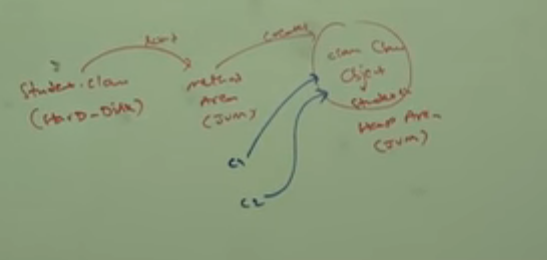 Student.class
(Hard-Disk)
load
method
Area
(JVM)
creates
class Class
Object
Student
Heap Area
(JVM)
C1
C2